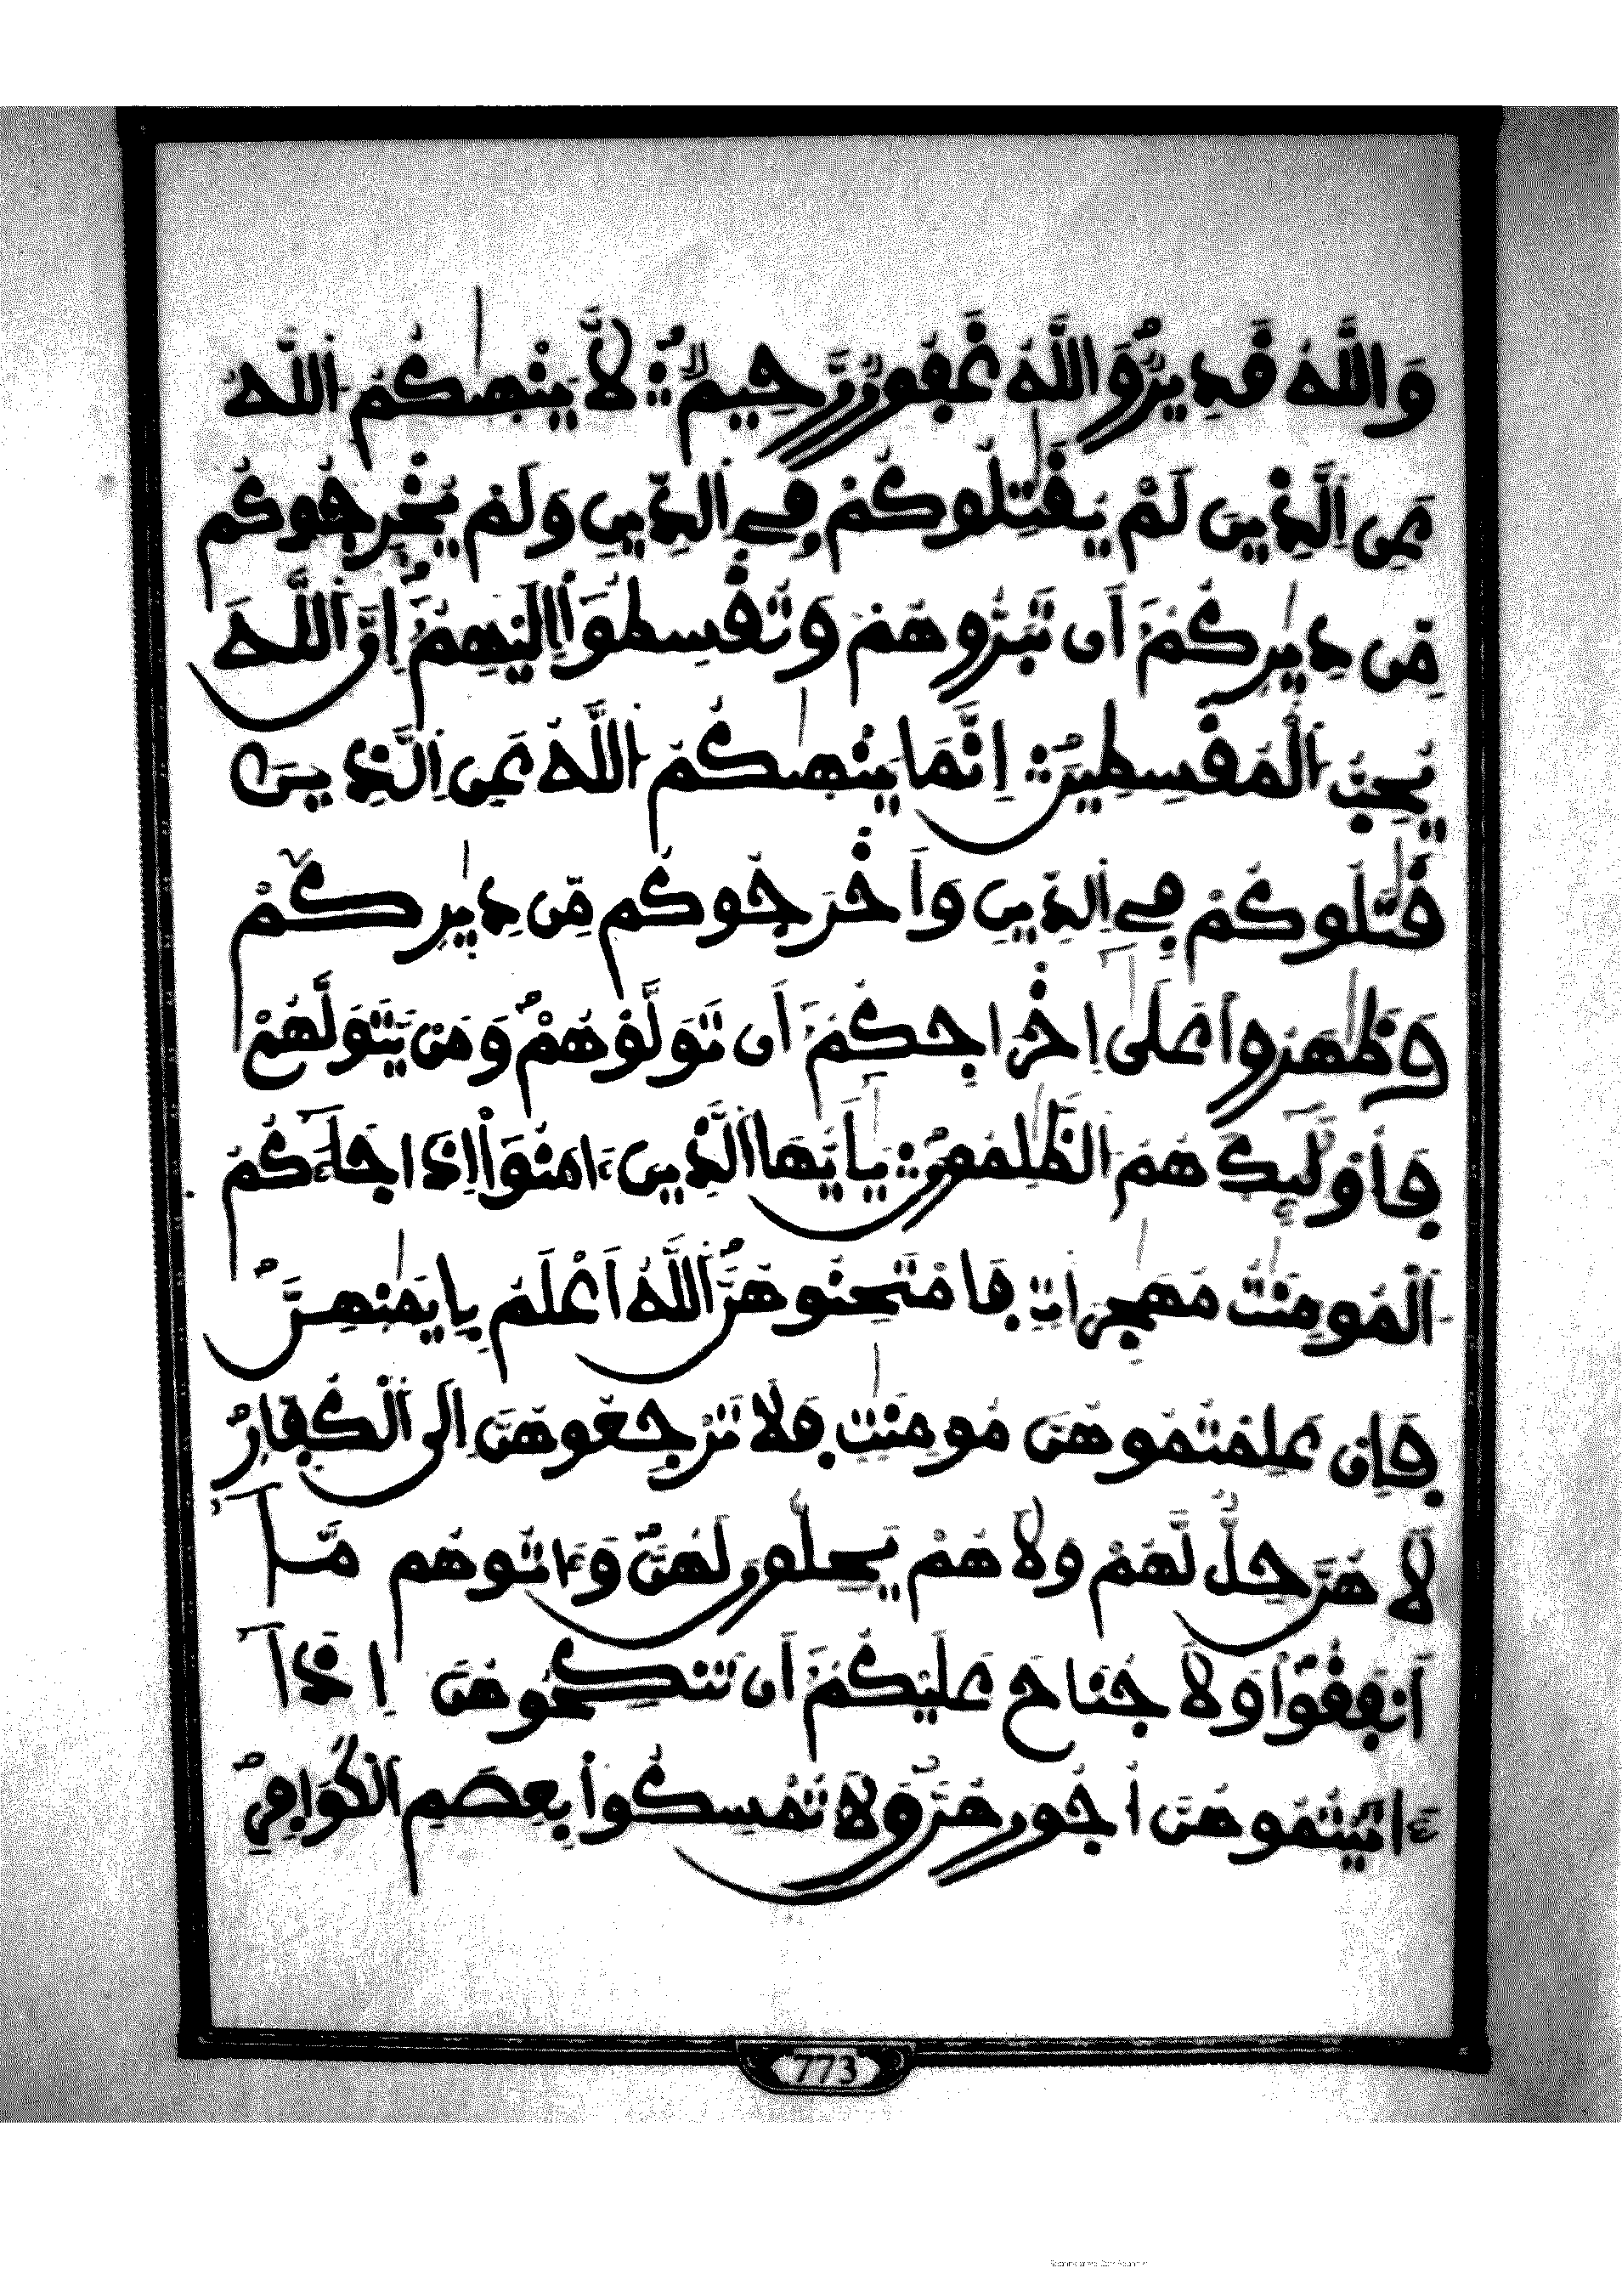 وَاللَّهُ قَدِيرٌ وَاللَّهُ غَفُورٌ رَّحِيمٌ لَّا يَنْهَىٰكُمُ اللَّهُ
عَنِ الَّذِينَ لَمْ يُقَٰتِلُوكُمْ فِي الدِّينِ وَلَمْ يُخْرِجُوكُم
مِّن دِيَٰرِكُمُ أَن تَبَرُّوهُمْ وَتُقْسِطُوا إِلَيْهِمُ إِنَّ اللَّهَ
يُحِبُّ الْمُقْسِطِينَ إِنَّمَا يَنْهَىٰكُمُ اللَّهُ عَنِ الَّذِينَ
قَٰتَلُوكُمْ فِي الدِّينِ وَأَخْرَجُوكُم مِّن دِيَٰرِكُمْ
وَظَٰهَرُوا عَلَىٰ إِخْرَاجِكُمُ أَن تَوَلَّوْهُمْ وَمَنْ يَتَوَلَّهُمْ
فَأُوْلَٰئِكَ هُمُ الظَّٰلِمُونَ يَٰأَيُّهَا الَّذِينَ ءَامَنُوا إِذَا جَاءَكُمُ
الْمُومِنَٰتُ مُهَٰجِرَاتٍ فَامْتَحِنُوهُنَّ اللَّهُ أَعْلَمُ بِإِيمَٰنِهِنَّ
فَإِنْ عَلِمْتُمُوهُنَّ مُومِنَٰتٍ فَلَا تَرْجِعُوهُنَّ إِلَى الْكُفَّارِ
لَا هُنَّ حِلٌّ لَّهُمْ وَلَا هُمْ يَحِلُّونَ لَهُنَّ وَءَاتُوهُم مَّا
أَنفَقُوا وَلَا جُنَاحَ عَلَيْكُمُ أَن تَنكِحُوهُنَّ إِذَا
ءَاتَيْتُمُوهُنَّ أُجُورَهُنَّ وَلَا تُمْسِكُوا بِعِصَمِ الْكَوَافِرِ
773